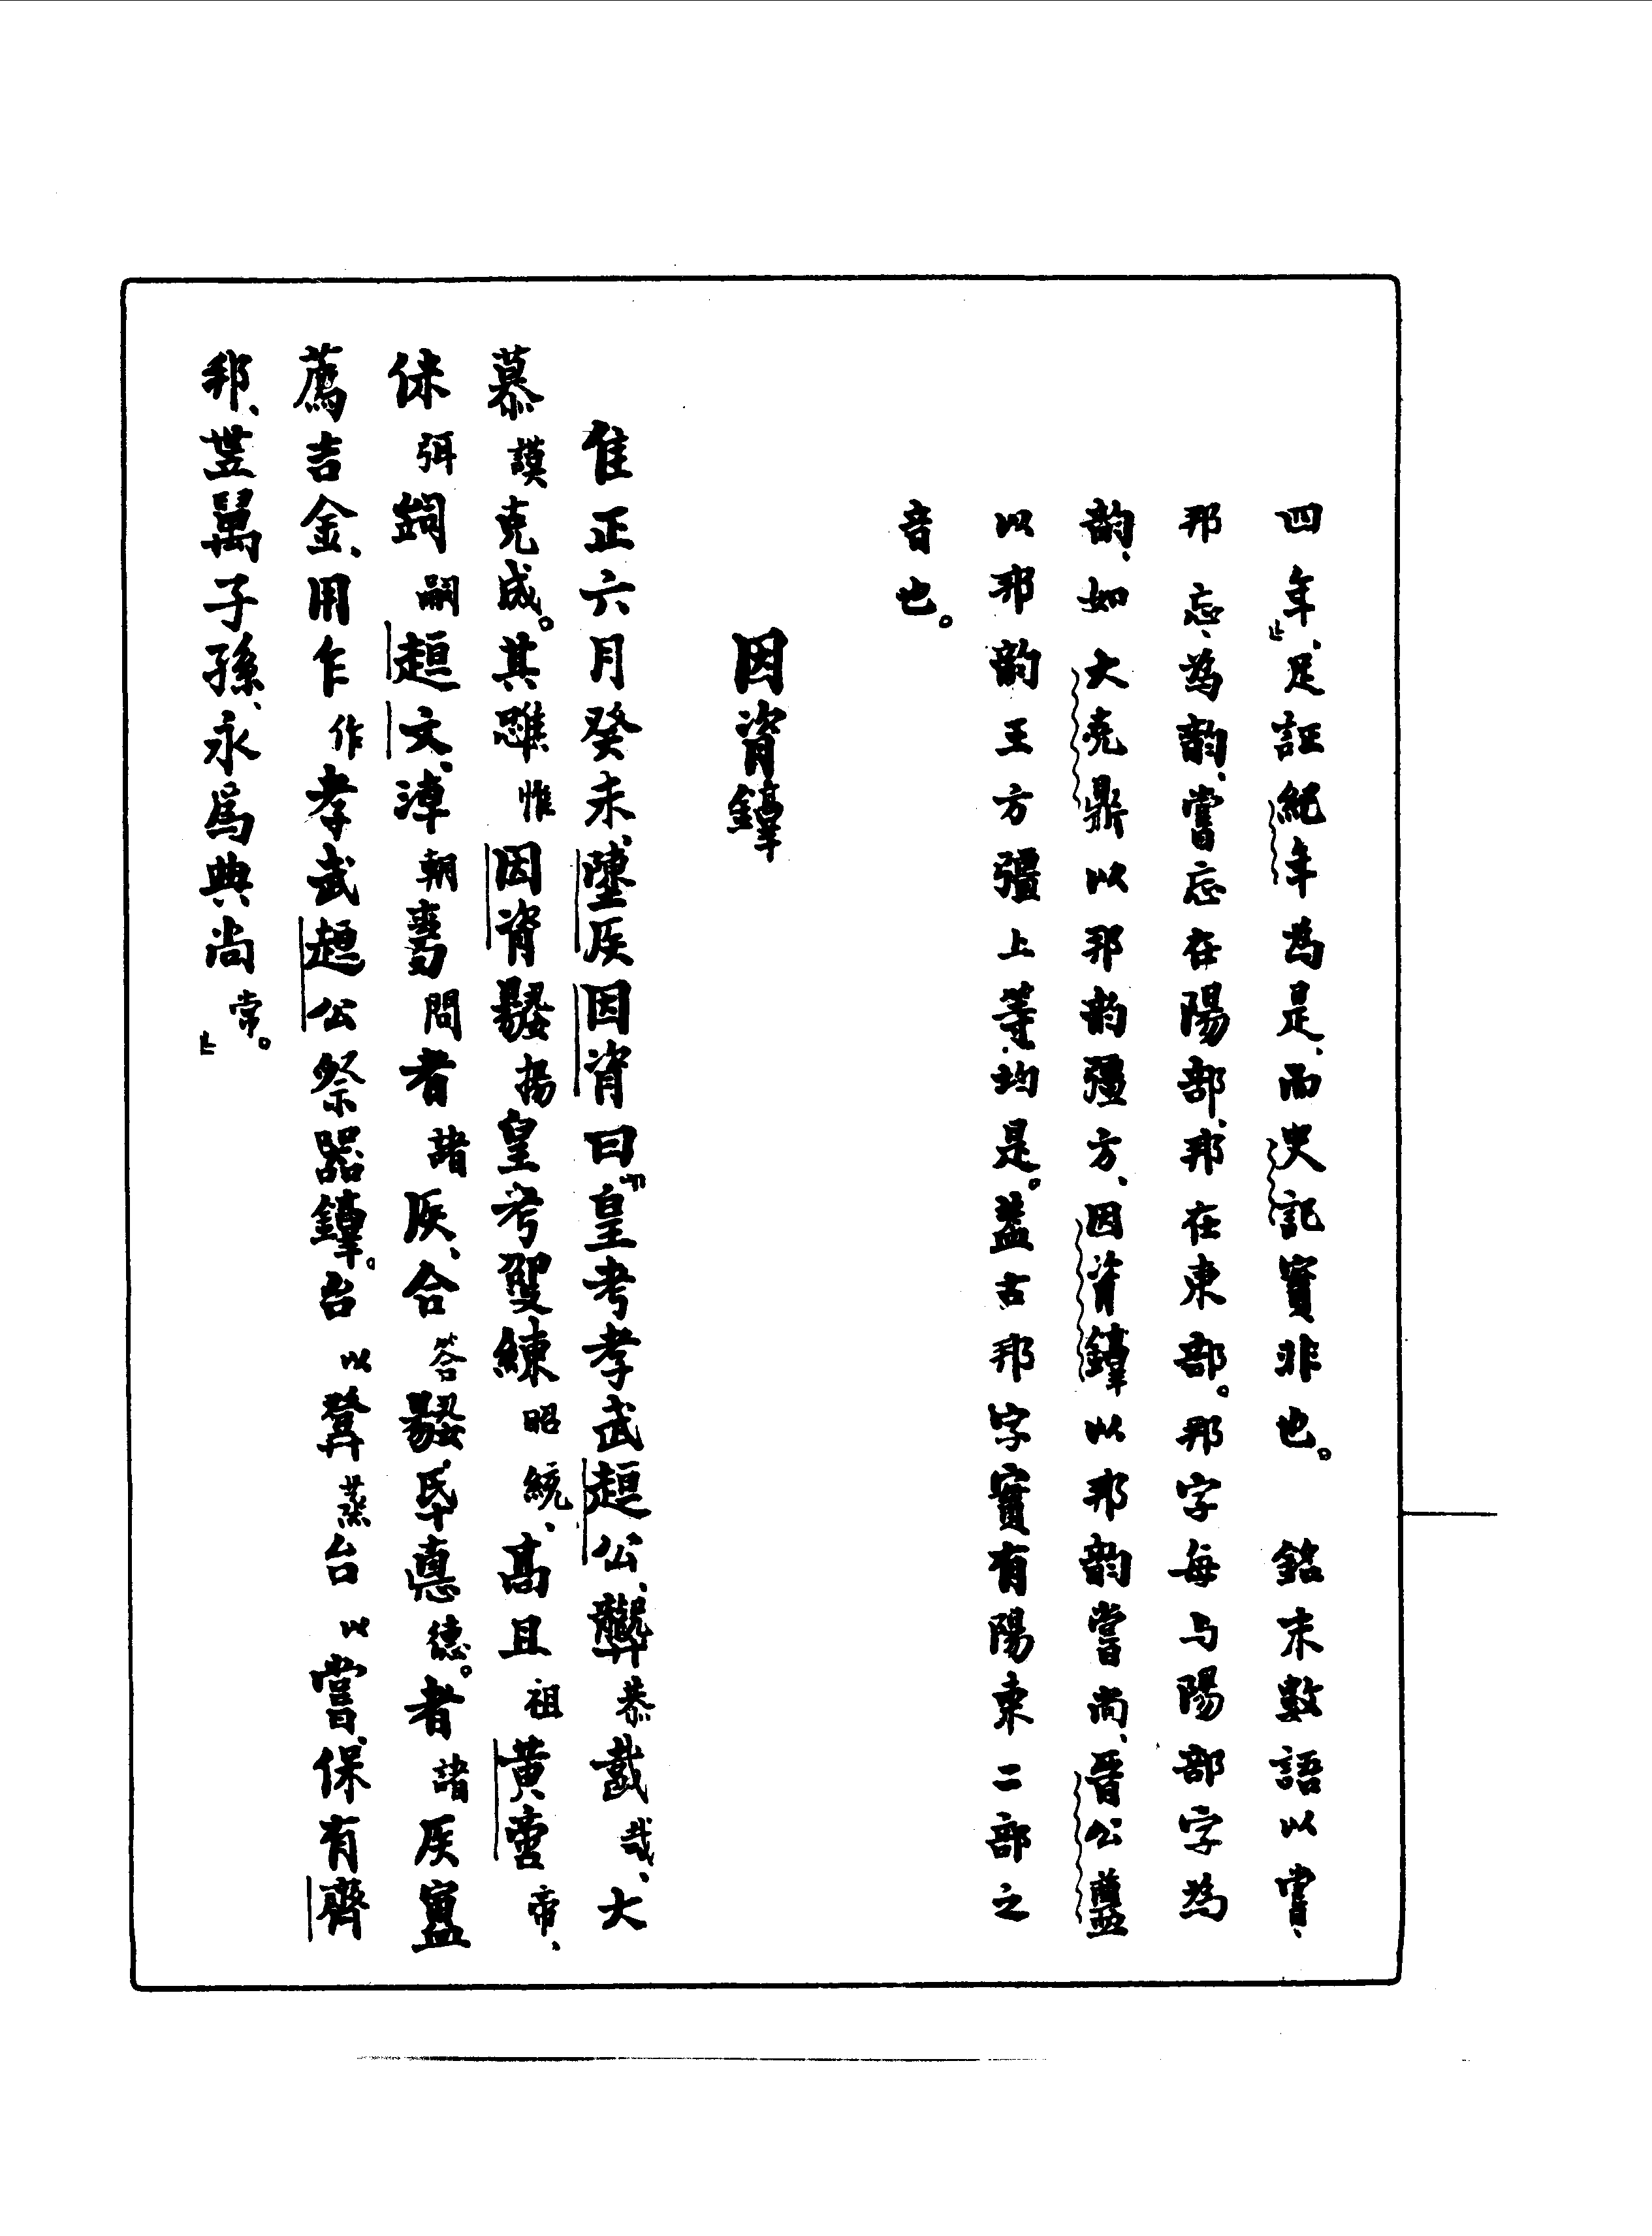 四年』足証紀年為是、而史記實非也。　銘末數語以嘗、
邦忘、為韵、嘗忘在陽部、邦在東部。邦字每与陽部字為
韵、如大克鼎以邦韵彊方、因𬯎錞以邦韵嘗尚、晉公𥂴
以邦韵王方彊上等、均是。蓋古邦字實有陽東二部之
音也。
因𬯎錞
隹正六月癸未、墬侯因𬯎曰『皇考孝武趄公、龏恭戠哉、大
慕謨克成。其惟因𬯎揚皇考昭統、高且祖黃啻帝、
侎弭嗣趄文、淖朝問者諸侯、合答揚氒悳德。者諸侯
薦吉金、用乍作孝武趄公祭器錞。台以登蒸台以嘗、保有齊
邦、世萬子孫、永為典尚常。』